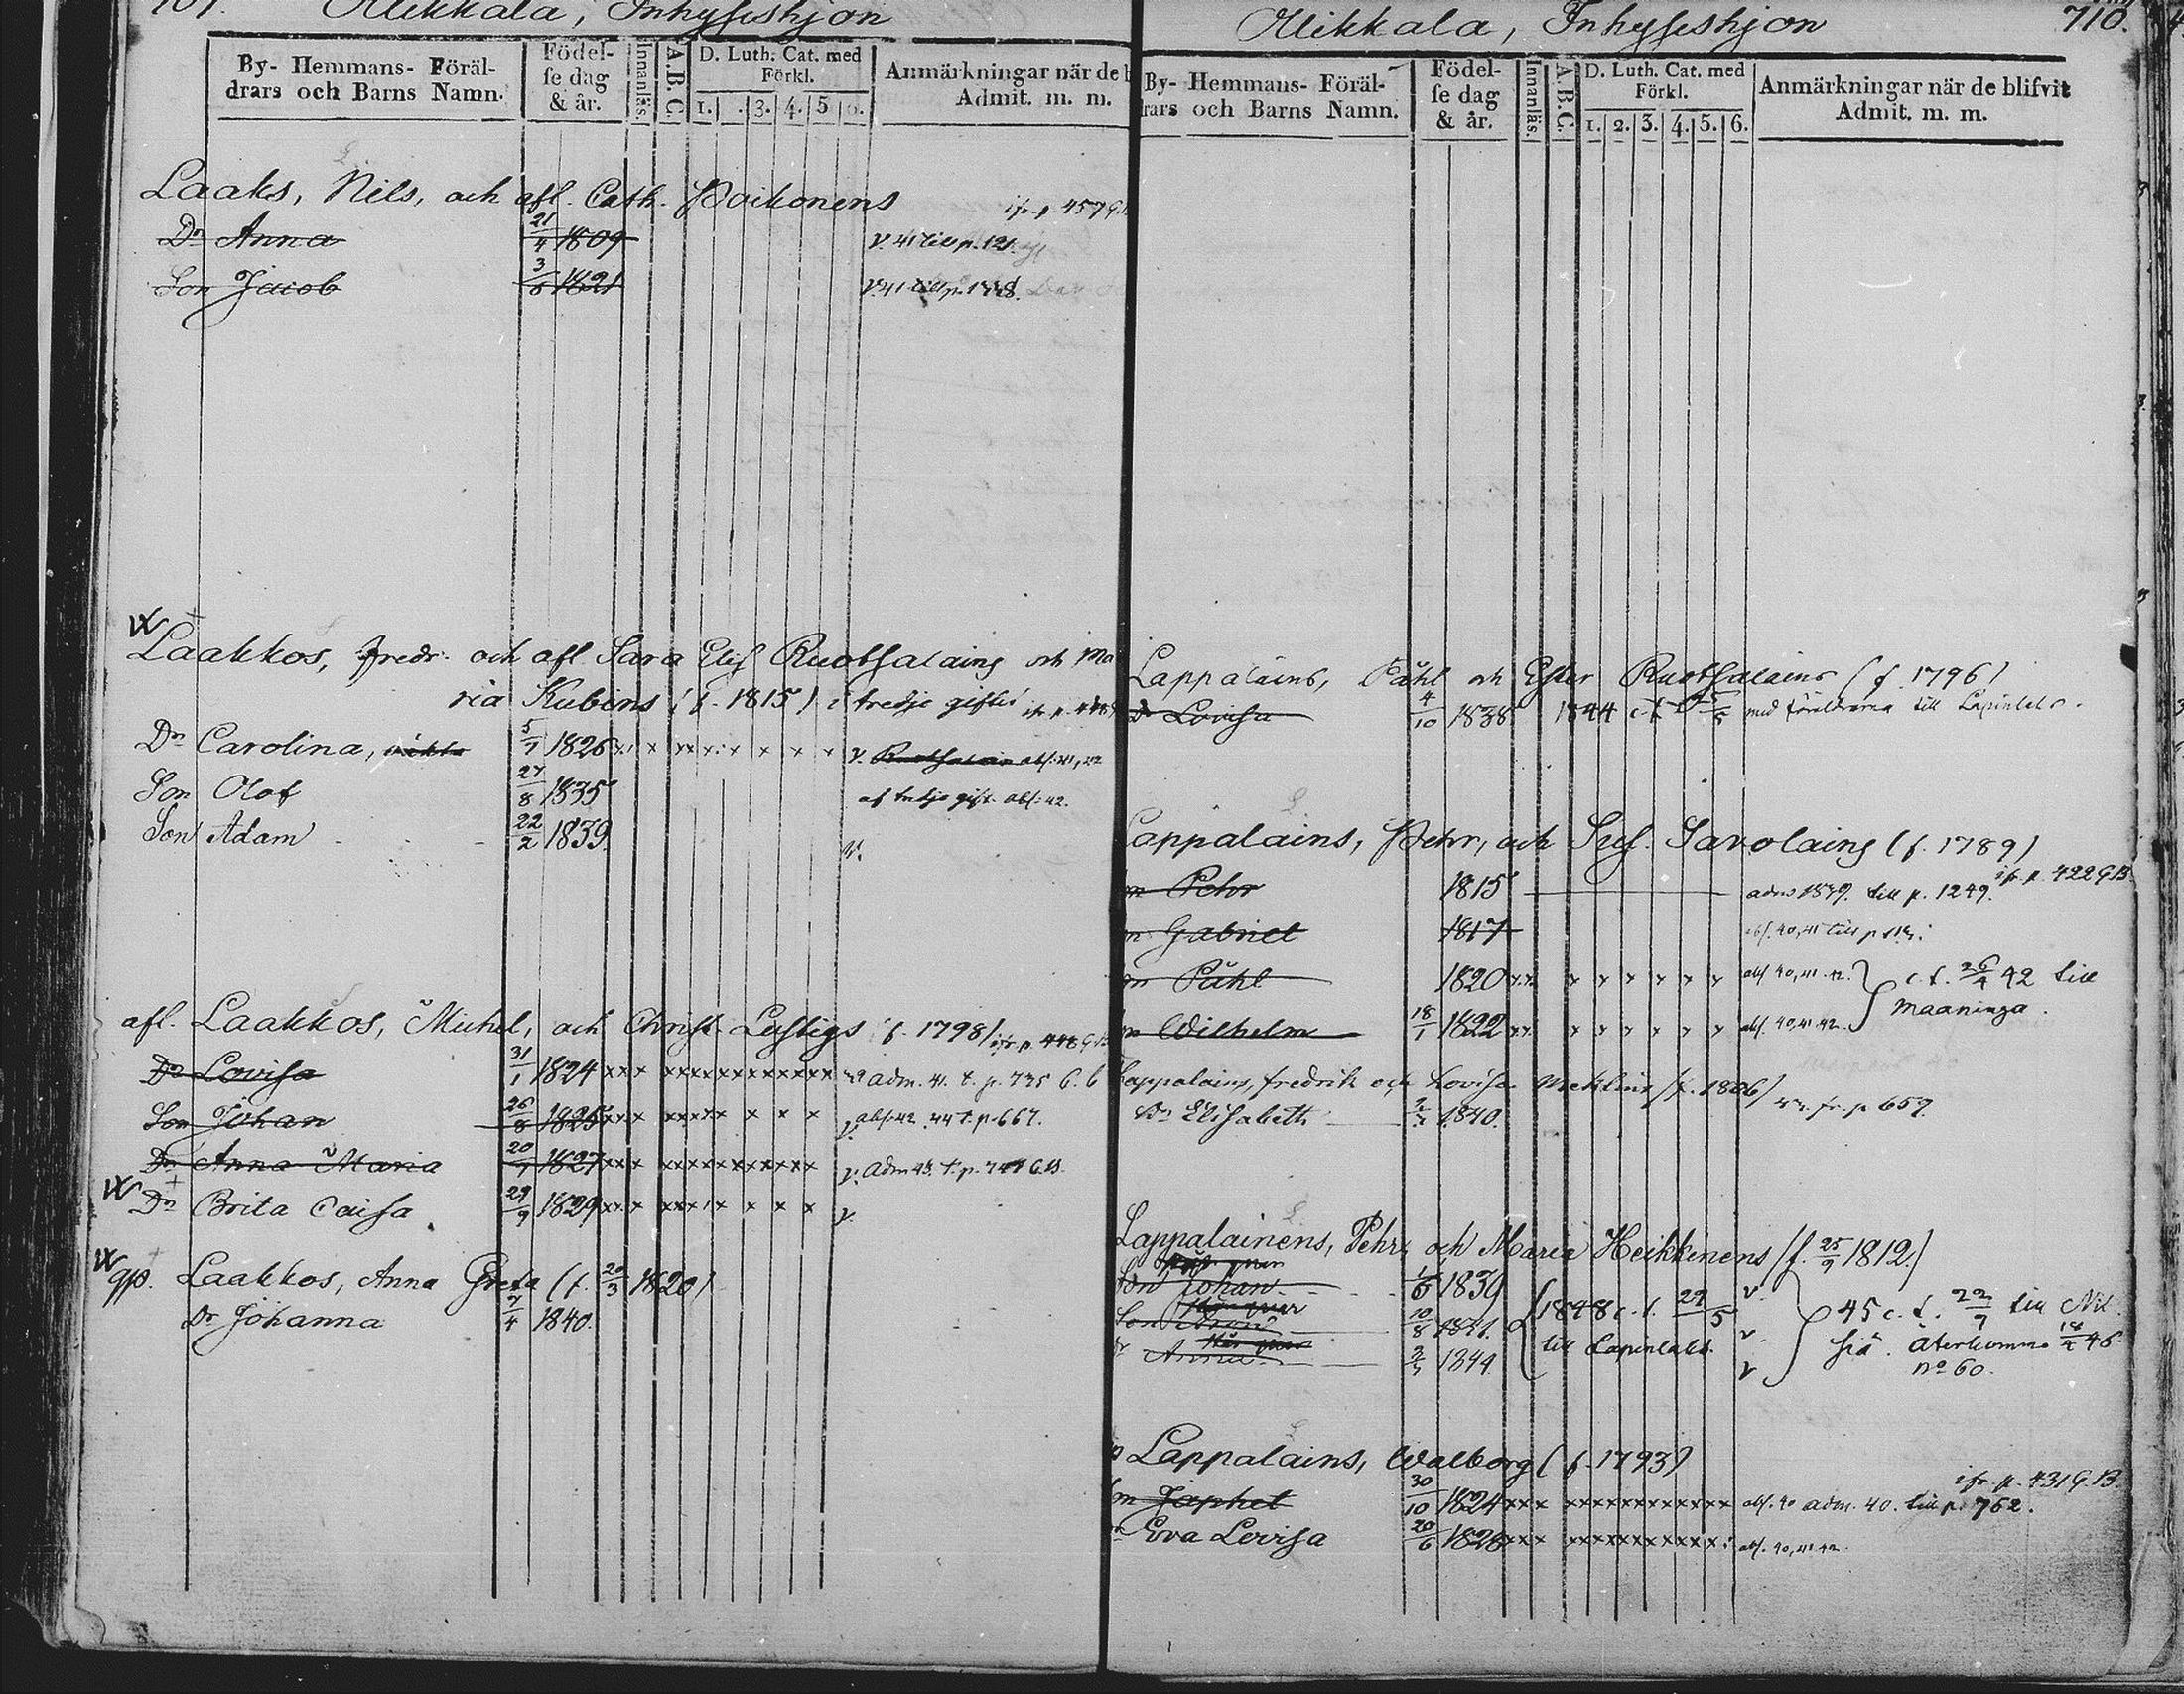 Mikkala, Inhyseshjon
By- Hemmans- Föräl-
drars och Barns Namn.
Födel-
se dag
& år.
Innanläs.
A.B.C.
D. Luth. Cat. med
Förkl.
1. 3. 4. 5 6.
Anmärkningar när de b
Admit. m. m.
Laaks, Nils, och afl. Cath. Poikonens ifr. p. 457 G.B.
Dr Anna 21/4 1809 v. 41 till p. 121.
Son Jacob 3/6 1821 v. 41 till p.
Laakkos, Fredr. och afl. Sara Elis Ruotsalains och Ma
ria Kubins (f. 1815) i tredje giftet ifr. p.
Dr Carolina, 5/7 1826 x x x x x x x x x v. abs. 41, 42
Son Olof 27/8 1835 af tredje gift. abs. 42.
Son Adam 22/2 1839. v.
afl. Laakkos, Michel, och Christ. Lustigs (f. 1798) ifr. p. 448 G.B.
Dr Lovisa 31/1 1824 xxx xxxxxxxxxxxx adm. 41. t. p. 735 G. B
Son Johan 26/8 1825 xxx xxxxx x x x v. abs. 42. 44 t. p. 667.
Dr Anna Maria 20/7 1827 xxx xxxxxxxxxxx v. adm 43. t. p. G.B.
Dr Brita Caisa 29/9 1829 xxx xxxxx x x x v.
qp. Laakkos, Anna Greta (f. 20/3 1820)
Dr Johanna 7/4 1840.
Mikkala, Inhyseshjon 710.
By- Hemmans- Föräl-
rars och Barns Namn.
Födel-
se dag
& år.
Innanläs.
A.B.C.
D. Luth. Cat. med
Förkl.
1. 2. 3. 4. 5. 6.
Anmärkningar när de blifvit
Admit. m. m.
Lappalains, Påhl och Ester Ruotsalains (f. 1796)
Dr Lovisa 4/10 1838 1844 c. t. med föräldrarna till Lapinlaks.
Lappalains, Pehr, och Sus. Savolains (f. 1789)
ifr. p. 422 G.B.
Pehr 1815 adm 1839. till p. 1249.
Gabriel 1817 abs. 40, 41 till p
Påhl 1820 x x x x x x x x abs. 40, 41. 42. } c. t. 26/4 42 till
Wilhelm 18/1 1822 x x x x x x x x abs. 40, 41. 42. } Maaninga.
Lappalains, Fredrik och Lovisa (f. 1806) fr. p 659.
Dr Elisabeth 1840.
Lappalainens, Pehr, och Maria Heikkinens (f. 25/9 1812.)
Son Johan 1/6 1839 v.
Son 10/8 1841. { 1848 c. t. 29/5 v. } 45 c. t. 22/9 till Nil
Dr Anna 1844 till Lapinlaks. v siä. återkomne 46.
no 60.
Lappalains, Walborg (f. 1793)
ifr. p. 431 G.B.
Japhet 30/10 1824 xxx xxxxxxxxxxxx abs. 40 adm. 40. till p. 762.
Eva Lovisa 20/6 1828 xxx xxxxxxxxxxx abs. 40, 41 42.